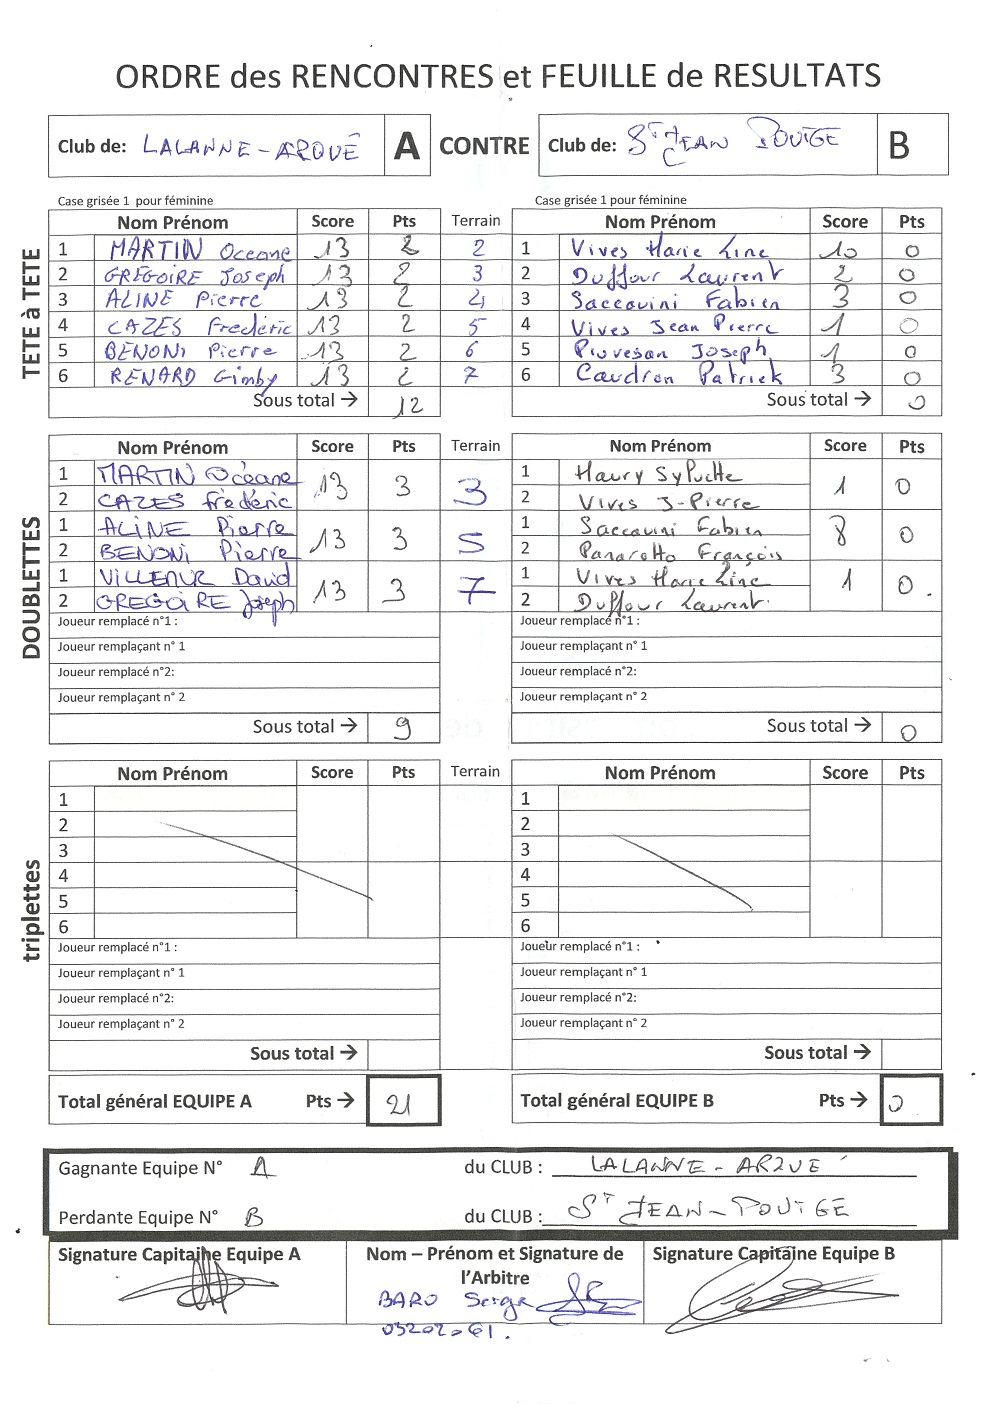 ORDRE des RENCONTRES et FEUILLE de RESULTATS
Club de: LALANNE-ARQUÉ A CONTRE Club de: St JEAN POUTGE B
Case grisée 1 pour féminine Case grisée 1 pour féminine
TETE à TETE
Nom Prénom Score Pts Terrain Nom Prénom Score Pts
1 MARTIN Oceane 13 2 2 1 Vives Marie Line 10 0
2 GREGOIRE Joseph 13 2 3 2 Duffour Laurent 2 0
3 ALINE Pierre 13 2 4 3 Saccavini Fabien 3 0
4 CAZES Frederic 13 2 5 4 Vives Jean Pierre 1 0
5 BENONI Pierre 13 2 6 5 Piovesan Joseph 1 0
6 RENARD Gimby 13 2 7 6 Caudron Patrick 3 0
Sous total → 12 Sous total → 0
DOUBLETTES
Nom Prénom Score Pts Terrain Nom Prénom Score Pts
1 MARTIN Océane 13 3 3 1 Haury 1 0
2 CAZES frédéric 2 Vives J-Pierre
1 ALINE Pierre 13 3 5 1 Saccavini Fabien 8 0
2 BENONI Pierre 2 Panarotto François
1 David 13 3 7 1 Vives Marie Line 1 0.
2 GREGOIRE Joseph 2 Duffour Laurent.
Joueur remplacé n°1 : Joueur remplacé n°1 :
Joueur remplaçant n° 1 Joueur remplaçant n° 1
Joueur remplacé n°2: Joueur remplacé n°2:
Joueur remplaçant n° 2 Joueur remplaçant n° 2
Sous total → 9 Sous total → 0
triplettes
Nom Prénom Score Pts Terrain Nom Prénom Score Pts
1 1
2 2
3 3
4 4
5 5
6 6
Joueur remplacé n°1 : Joueur remplacé n°1 :
Joueur remplaçant n° 1 Joueur remplaçant n° 1
Joueur remplacé n°2: Joueur remplacé n°2:
Joueur remplaçant n° 2 Joueur remplaçant n° 2
Sous total → Sous total →
Total général EQUIPE A Pts → 21 Total général EQUIPE B Pts → 0
Gagnante Equipe N° A du CLUB : LALANNE-ARQUÉ
Perdante Equipe N° B du CLUB: St JEAN-POUTGE
Signature Capitaine Equipe A Nom – Prénom et Signature de Signature Capitaine Equipe B
l'Arbitre
BARO Serge